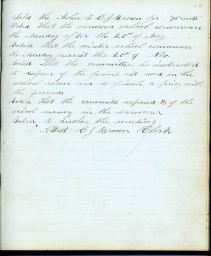 Sold the Ashes to C J Brown for 30 cents
Voted that the summer school commence
the Monday of the 20th of May
Voted that the winter school commence
the Monday nearest the 20th of Nov
Voted that the committee be instructed
to dispose of the funnel not used in the
school room and to privy with
the proceeds
Voted that the committee expend of the
school money in the summer
Voted to dissolve the meeting
Attest C J Brown Clerk